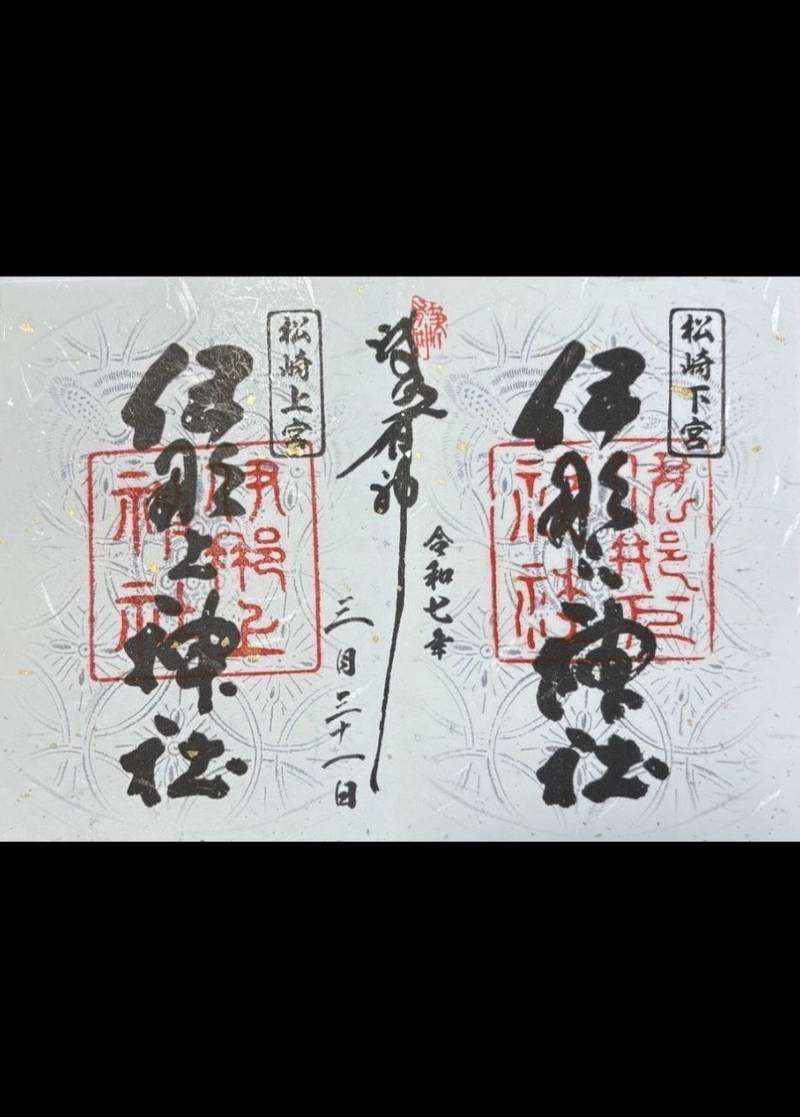 松崎下宮
伊那下神社
伊那下
神社
有神
令和七年
三月三十一日
松崎上宮
伊那上神社
伊那上
神社